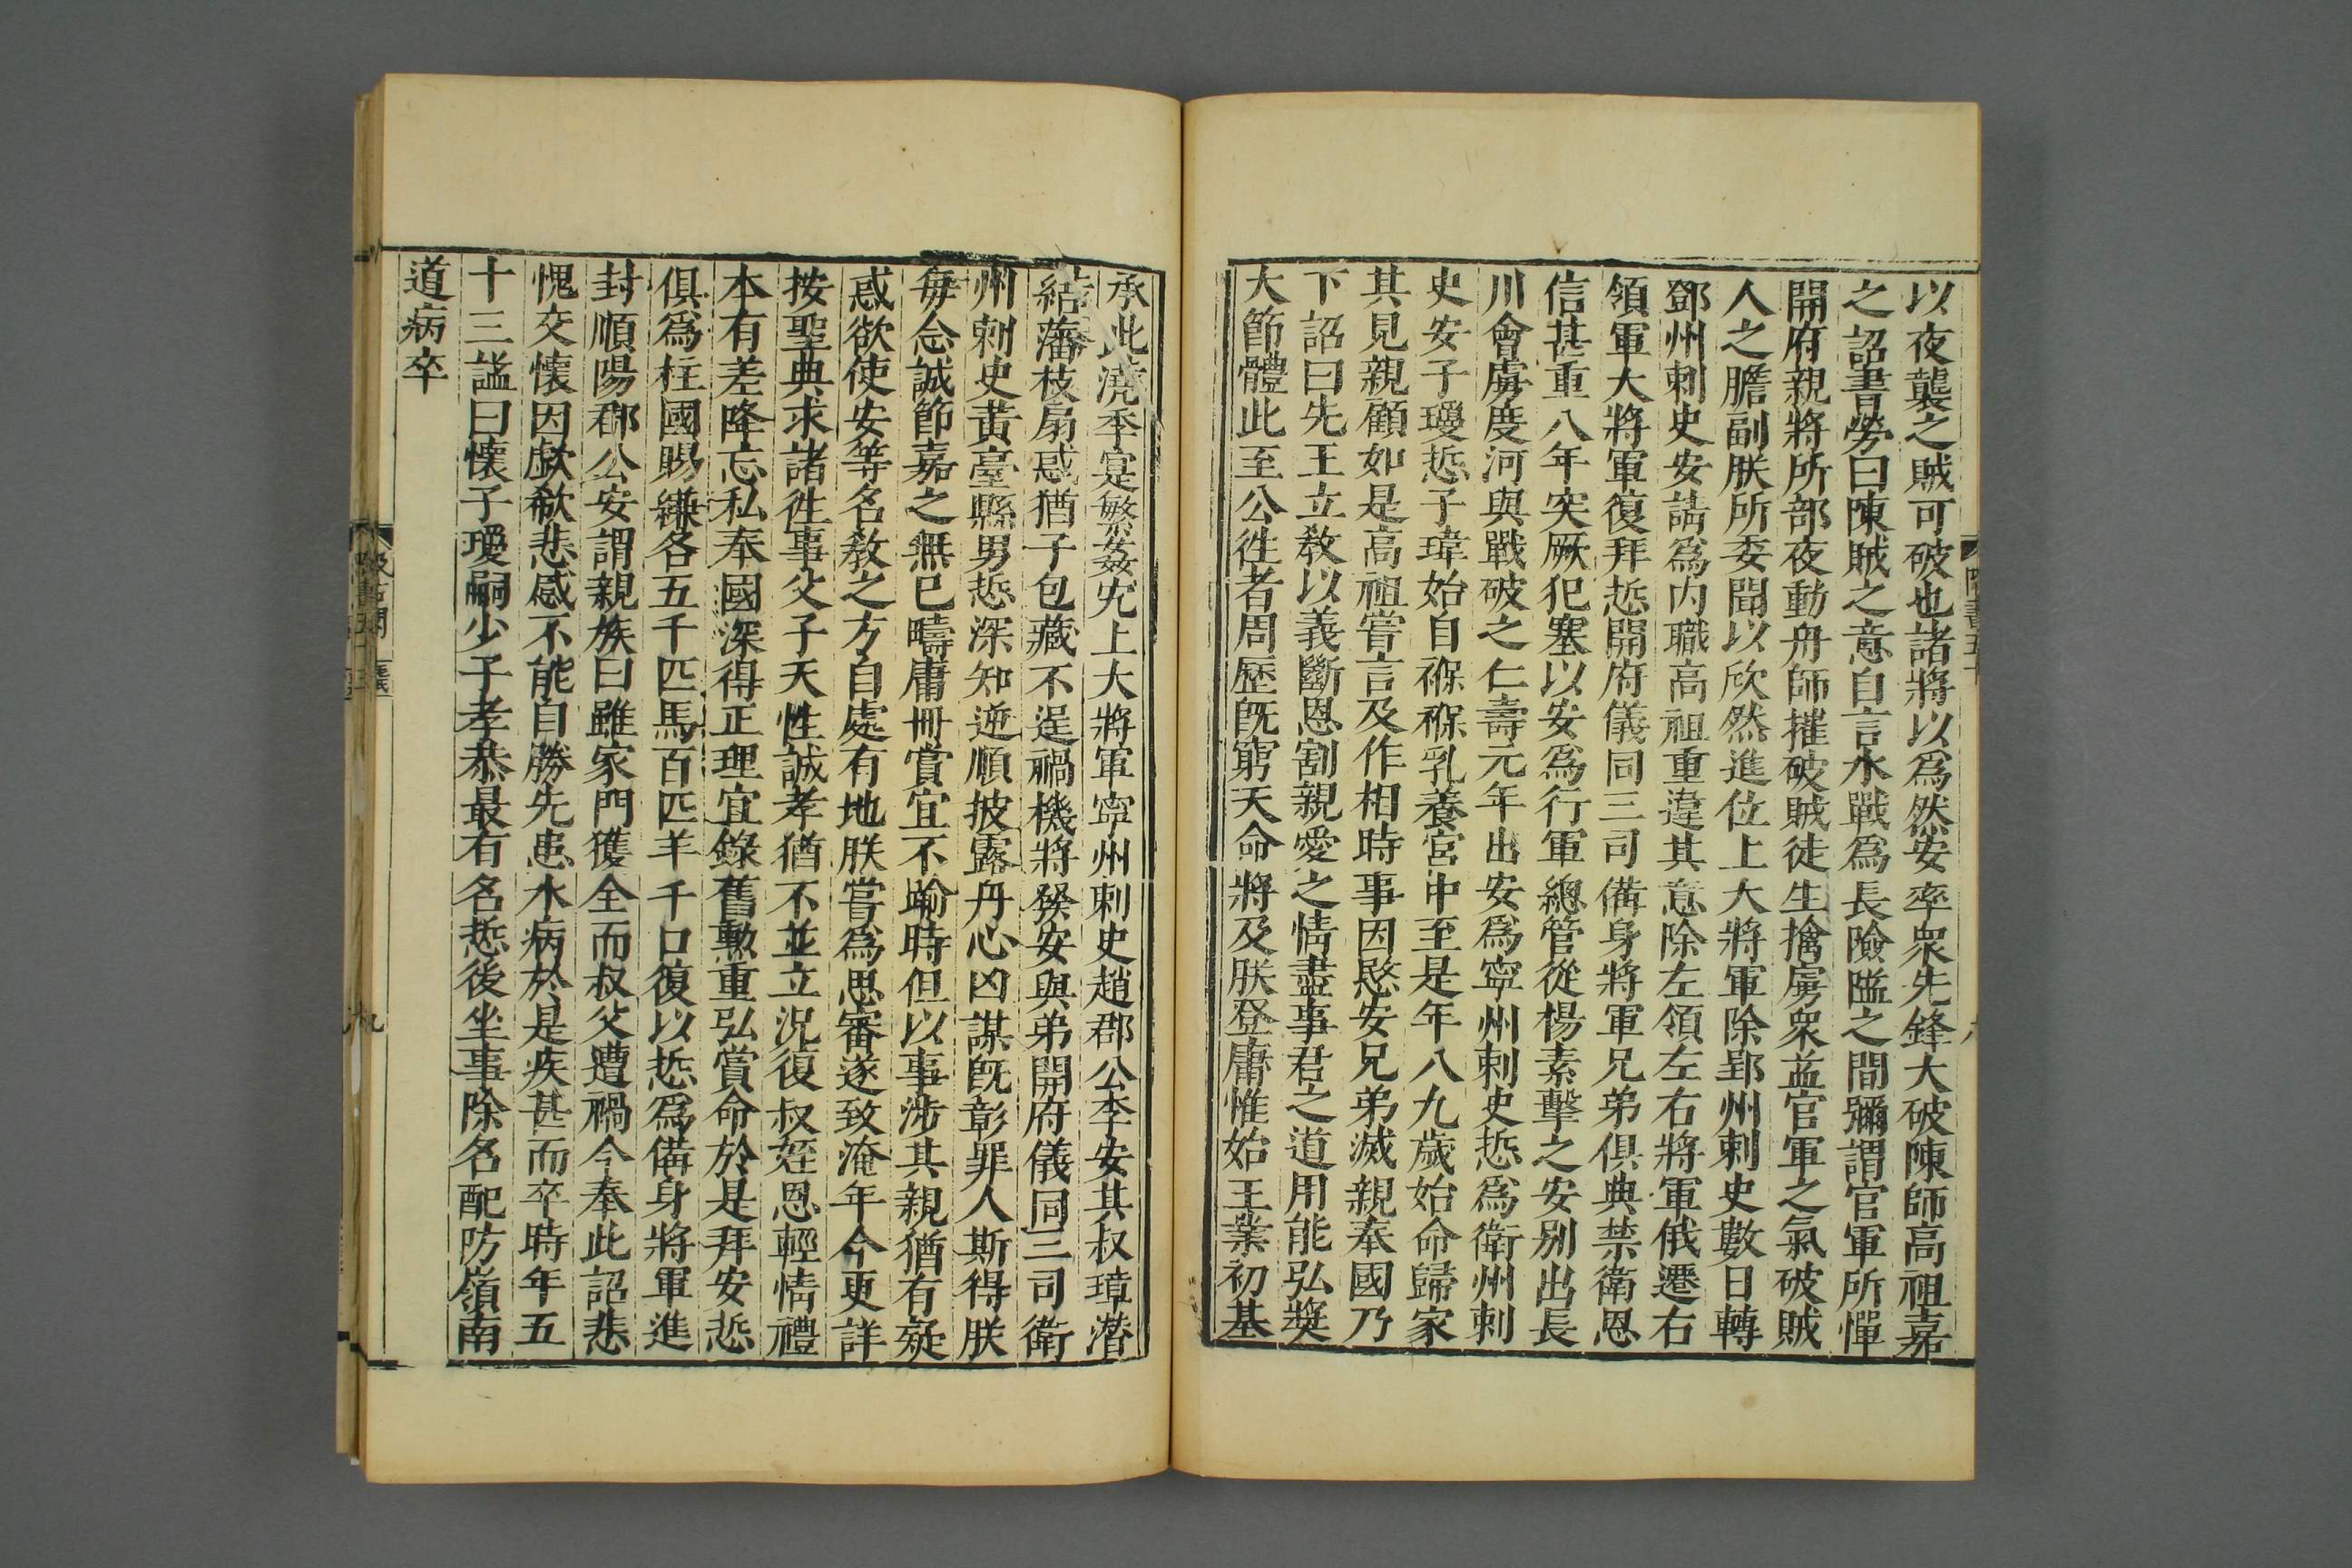 以夜襲之賊可破也諸將以爲然安率衆先鋒大破陳師高祖嘉
之詔書勞曰陳賊之意自言水戰爲長險隘之間彌謂官軍所憚
開府親將所部夜動舟師摧破賊徒生擒虜衆益官軍之氣破賊
人之膽副朕所委聞以欣然進位上大將軍除郢州刺史數日轉
鄧州刺史安請爲内職高祖重違其意除左領左右將軍俄遷右
領軍大將軍復拜悊開府儀同三司備身將軍兄弟俱典禁衛恩
信甚重八年突厥犯塞以安爲行軍總管從楊素擊之安别出長
川會虜度河與戰破之仁壽元年出安爲寧州刺史悊爲衛州刺
史安子瓊悊子瑋始自褓褓乳養宮中至是年八九歲始命歸家
其見親顧如是高祖嘗言及作相時事因愍安兄弟滅親奉國乃
下詔曰先王立教以義斷恩割親愛之情盡事君之道用能弘獎
大節體此至公徃者周歷旣窮天命將及朕登庸惟始王業初基
承此澆季寔繁姦宄上大將軍寧州刺史趙郡公李安其叔璋潛
結藩枝扇惑猶子包藏不逞禍機將發安與弟開府儀同三司衛
州刺史黃臺縣男悊深知逆順披露丹心凶謀旣彰罪人斯得朕
每念誠節嘉之無已疇庸冊賞宜不踰時但以事涉其親猶有疑
惑欲使安等名教之方自處有地朕嘗爲思審遂致淹年今更詳
按聖典求諸徃事父子天性誠孝猶不並立況復叔姪恩輕情禮
本有差降忘私奉國深得正理宜錄舊勲重弘賞命於是拜安悊
俱爲柱國賜縑各五千匹馬百匹羊千口復以悊爲備身將軍進
封順陽郡公安謂親族曰雖家門獲全而叔父遭禍今奉此詔悲
愧交懷因歔欷悲感不能自勝先患水病於是疾甚而卒時年五
十三諡曰懷子瓊嗣少子孝恭最有名悊後坐事除名配防嶺南
道病卒